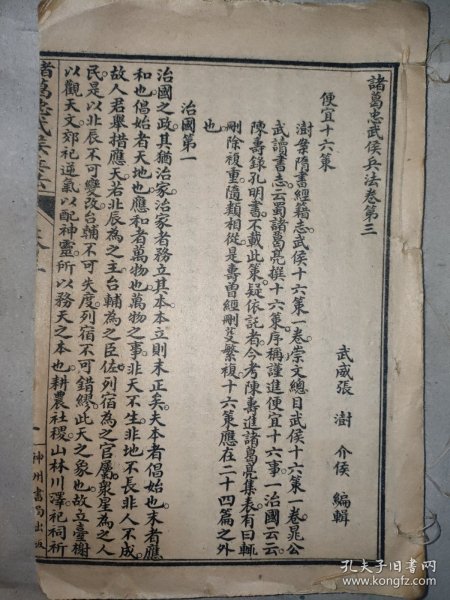 諸葛忠武侯兵法卷第三
武威張 澍 介侯 編輯
便宜十六策
澍案隋書經籍志武侯十六策一卷崇文總目武侯十六策一卷晁公
武讀書志云蜀諸葛亮撰十六策序稱謹進便宜十六事一治國云云
陳壽錄孔明書不載此策疑依託者今考陳壽進諸葛亮集表有曰輒
刪除複重隨類相從是壽曾經刪芟繁複十六策應在二十四篇之外
也
治國第一
治國之政其猶治家治家者務立其本本立則末正矣夫本者倡始也末者應
和也倡始者天地也應和者萬物也萬物之事非天不生非地不長非人不成
故人君舉措應天若北辰為之主台輔為之臣佐列宿為之官屬眾星為之人
民是以北辰不可變改台輔不可失度列宿不可錯繆此天之象也故立臺榭
以觀天文郊祀逆氣以配神靈所以務天之本也耕農社稷山林川澤祀祠祈
諸葛忠武侯兵法
神州書局出版
孔夫子旧书网
www.kongfz.com